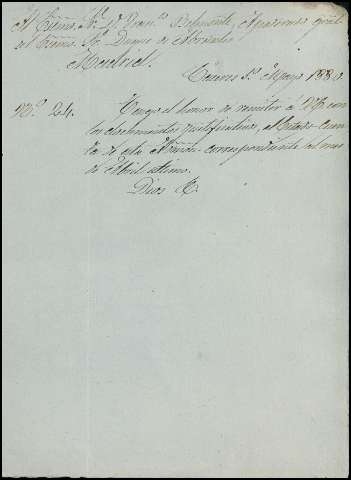 Al Exmo. Sr. D. Fran.co Belmonte, Apoderado gral
del Exmo. Sr. Duque de Abrantes
Madrid.
Cáceres 5 Mayo 1880.
N.º 24. Tengo el honor de remitir á V.E. con
los documentos justificativos, el Estado-Cuen-
ta de esta Admon. correspondiente al mes
de Abril último.
Dios &